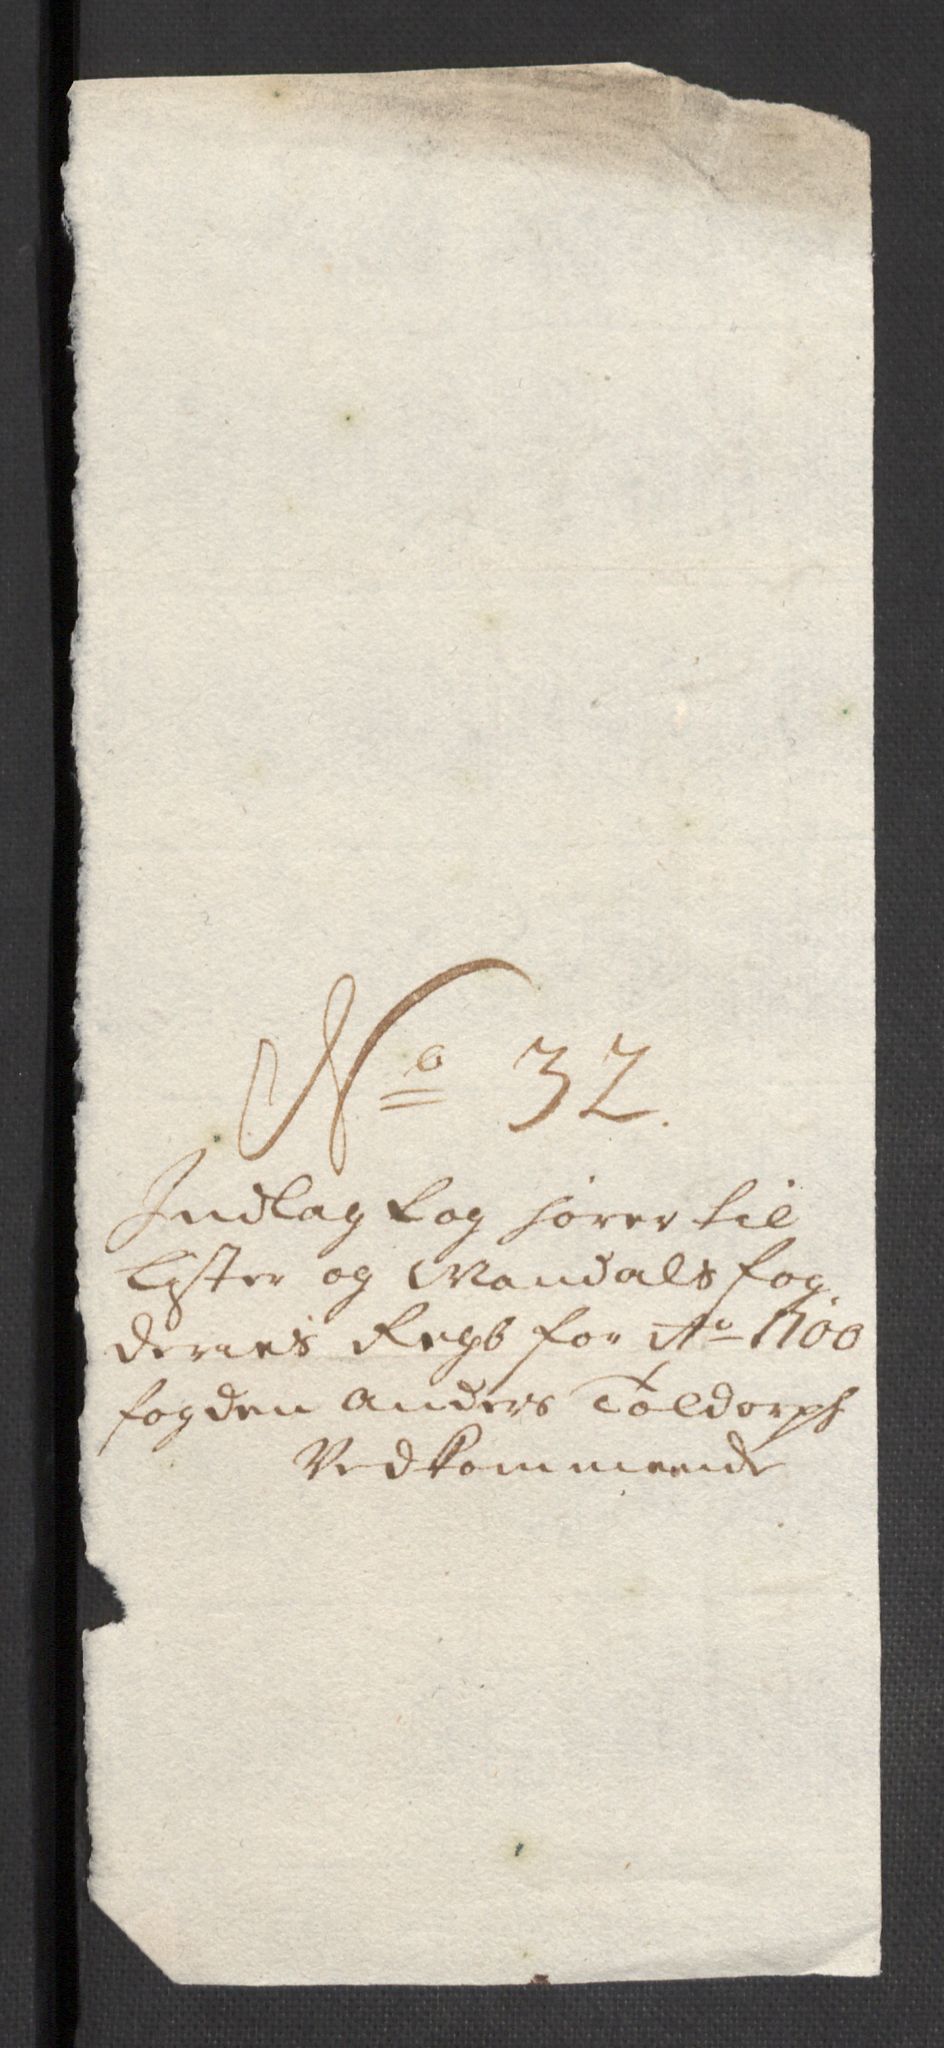 No 32.
Indlagt og hører til
Lister og Mandals fog
deries Regb for Ao 1700
fogden Anders Toldorph
Vedkommende